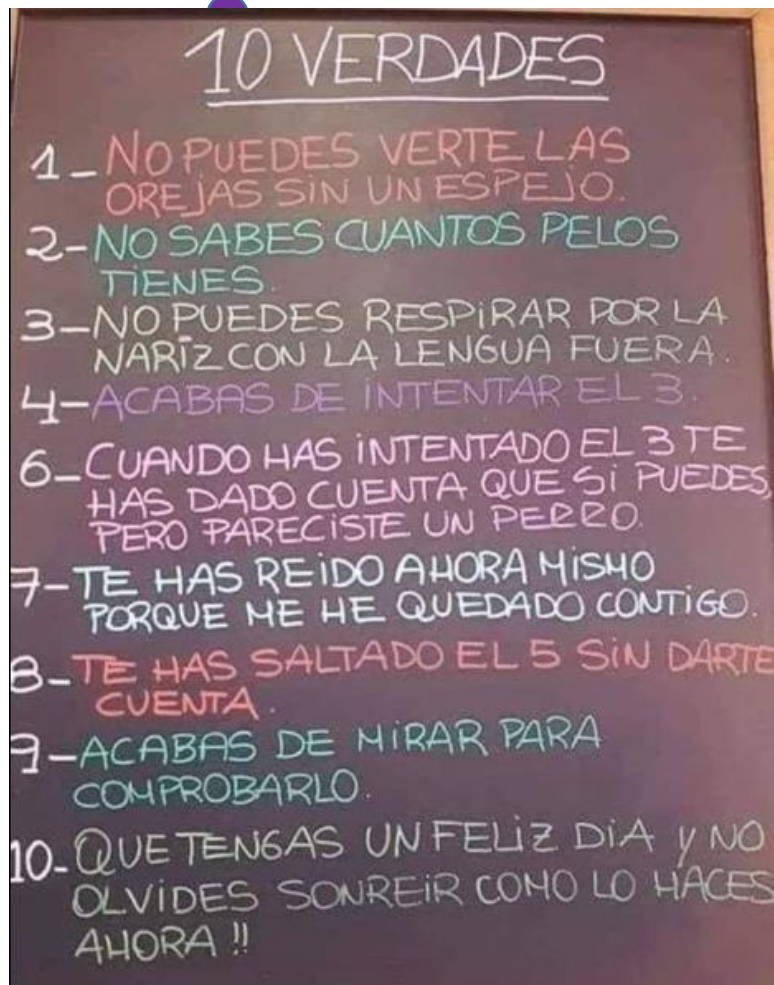 10 VERDADES
1- NO PUEDES VERTE LAS
OREJAS SIN UN ESPEJO.
2- NO SABES CUANTOS PELOS
TIENES.
3- NO PUEDES RESPIRAR POR LA
NARIZ CON LA LENGUA FUERA.
4- ACABAS DE INTENTAR EL 3.
6- CUANDO HAS INTENTADO EL 3 TE
HAS DADO CUENTA QUE SI PUEDES,
PERO PARECISTE UN PERRO.
7- TE HAS REIDO AHORA MISMO
PORQUE ME HE QUEDADO CONTIGO.
8- TE HAS SALTADO EL 5 SIN DARTE
CUENTA.
9- ACABAS DE MIRAR PARA
COMPROBARLO.
10- QUE TENGAS UN FELIZ DIA Y NO
OLVIDES SONREIR COMO LO HACES
AHORA !!